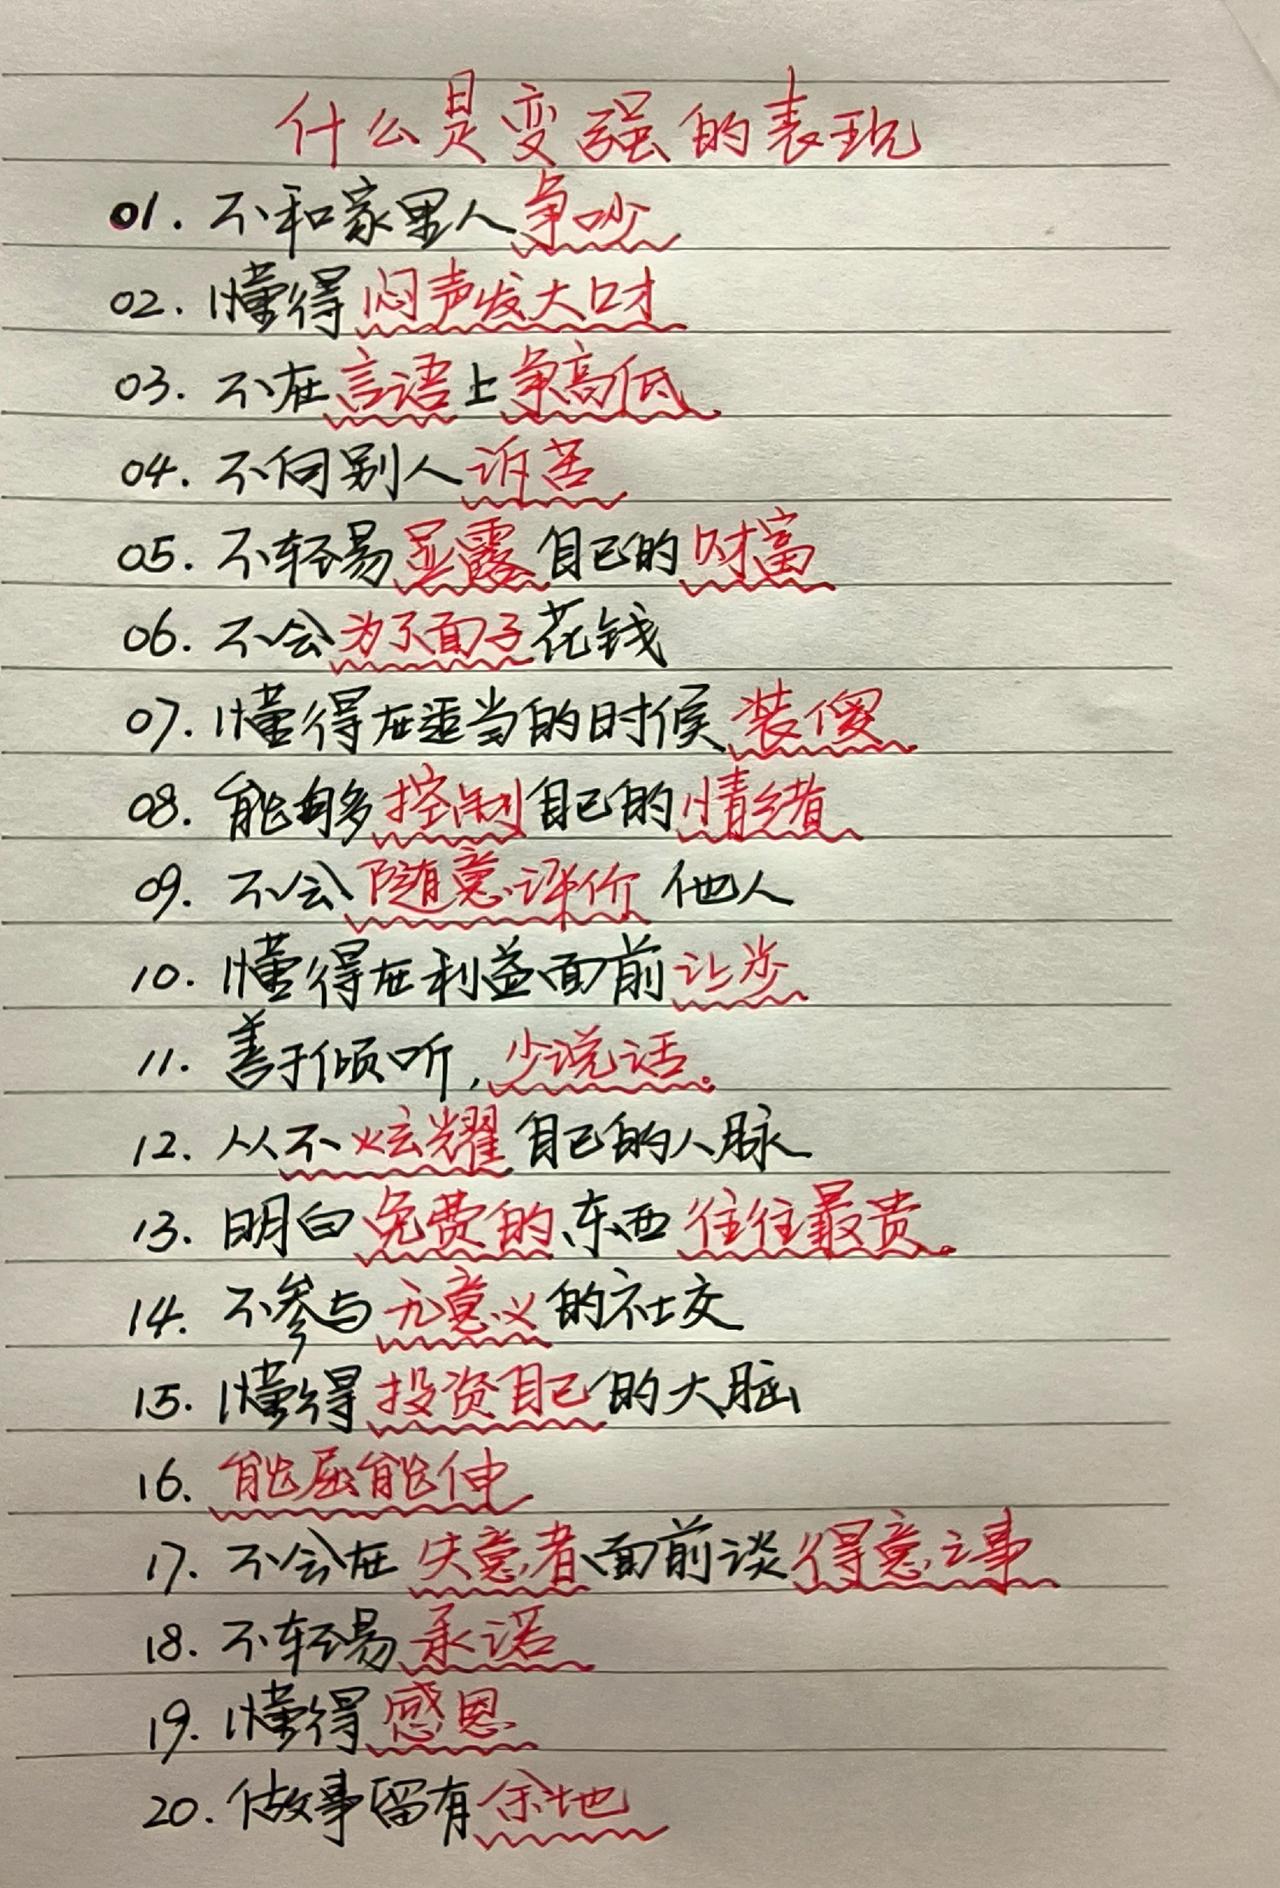 什么是变强的表现
01. 不和家里人争吵
02. 懂得闷声发大财
03. 不在言语上争高低
04. 不向别人诉苦
05. 不轻易显露自己的财富
06. 不会为了面子花钱
07. 懂得在适当的时候装傻
08. 能够控制自己的情绪
09. 不会随意评价他人
10. 懂得在利益面前让步
11. 善于倾听,少说话。
12. 从不炫耀自己的人脉
13. 明白免费的东西往往最贵。
14. 不参与无意义的社交
15. 懂得投资自己的大脑
16. 能屈能伸
17. 不会在失意者面前谈得意之事
18. 不轻易承诺
19. 懂得感恩
20. 做事留有余地